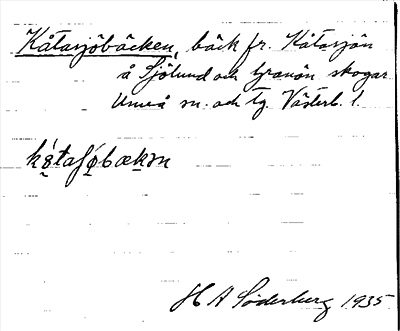 Kåtasjöbäcken, bäck fr. Kåtasjön
å Sjölund och Granön skogar
Umeå sn. och tg. Västerb. l.
H A Söderberg 1935